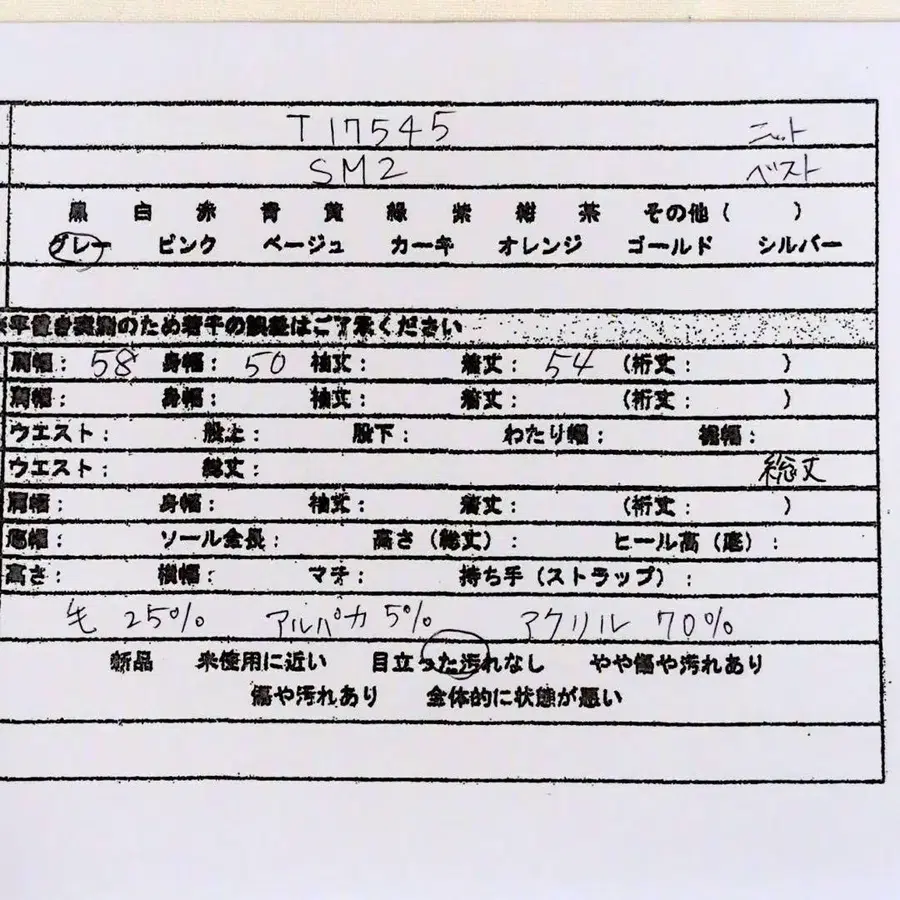 T17545 ニット
SM2 ベスト
黒 白 赤 青 黄 緑 紫 紺 茶 その他( )
グレー ピンク ベージュ カーキ オレンジ ゴールド シルバー
※平置き実測のため若干の誤差はご了承ください
肩幅: 58 身幅: 50 袖丈: 着丈: 54 (裄丈: )
肩幅: 身幅: 袖丈: 着丈: (裄丈: )
ウエスト: 股上: 股下: わたり幅: 裾幅:
ウエスト: 総丈: 総丈
肩幅: 身幅: 袖丈: 着丈: (裄丈: )
底幅: ソール全長: 高さ(総丈): ヒール高(底):
高さ: 横幅: マチ: 持ち手(ストラップ):
毛 25% アルパカ 5% アクリル 70%
新品 未使用に近い 目立った汚れなし やや傷や汚れあり
傷や汚れあり 全体的に状態が悪い